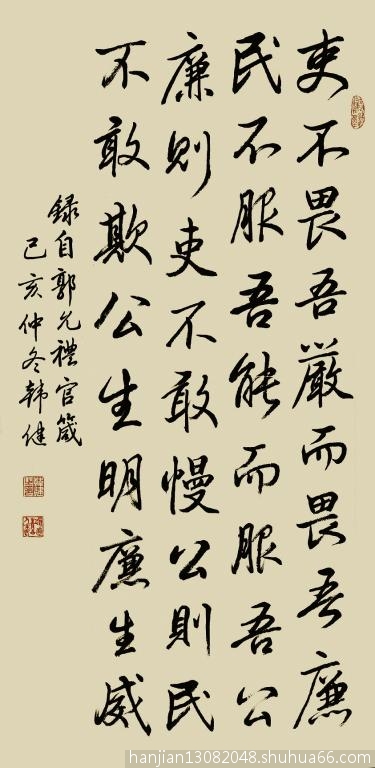 吏不畏吾嚴而畏吾廉
民不服吾能而服吾公
廉则吏不敢慢公則民
不敢欺公生明廉生威
録自郭允禮官箴
己亥仲冬韩健
hanjian13082048.shuhua66.com